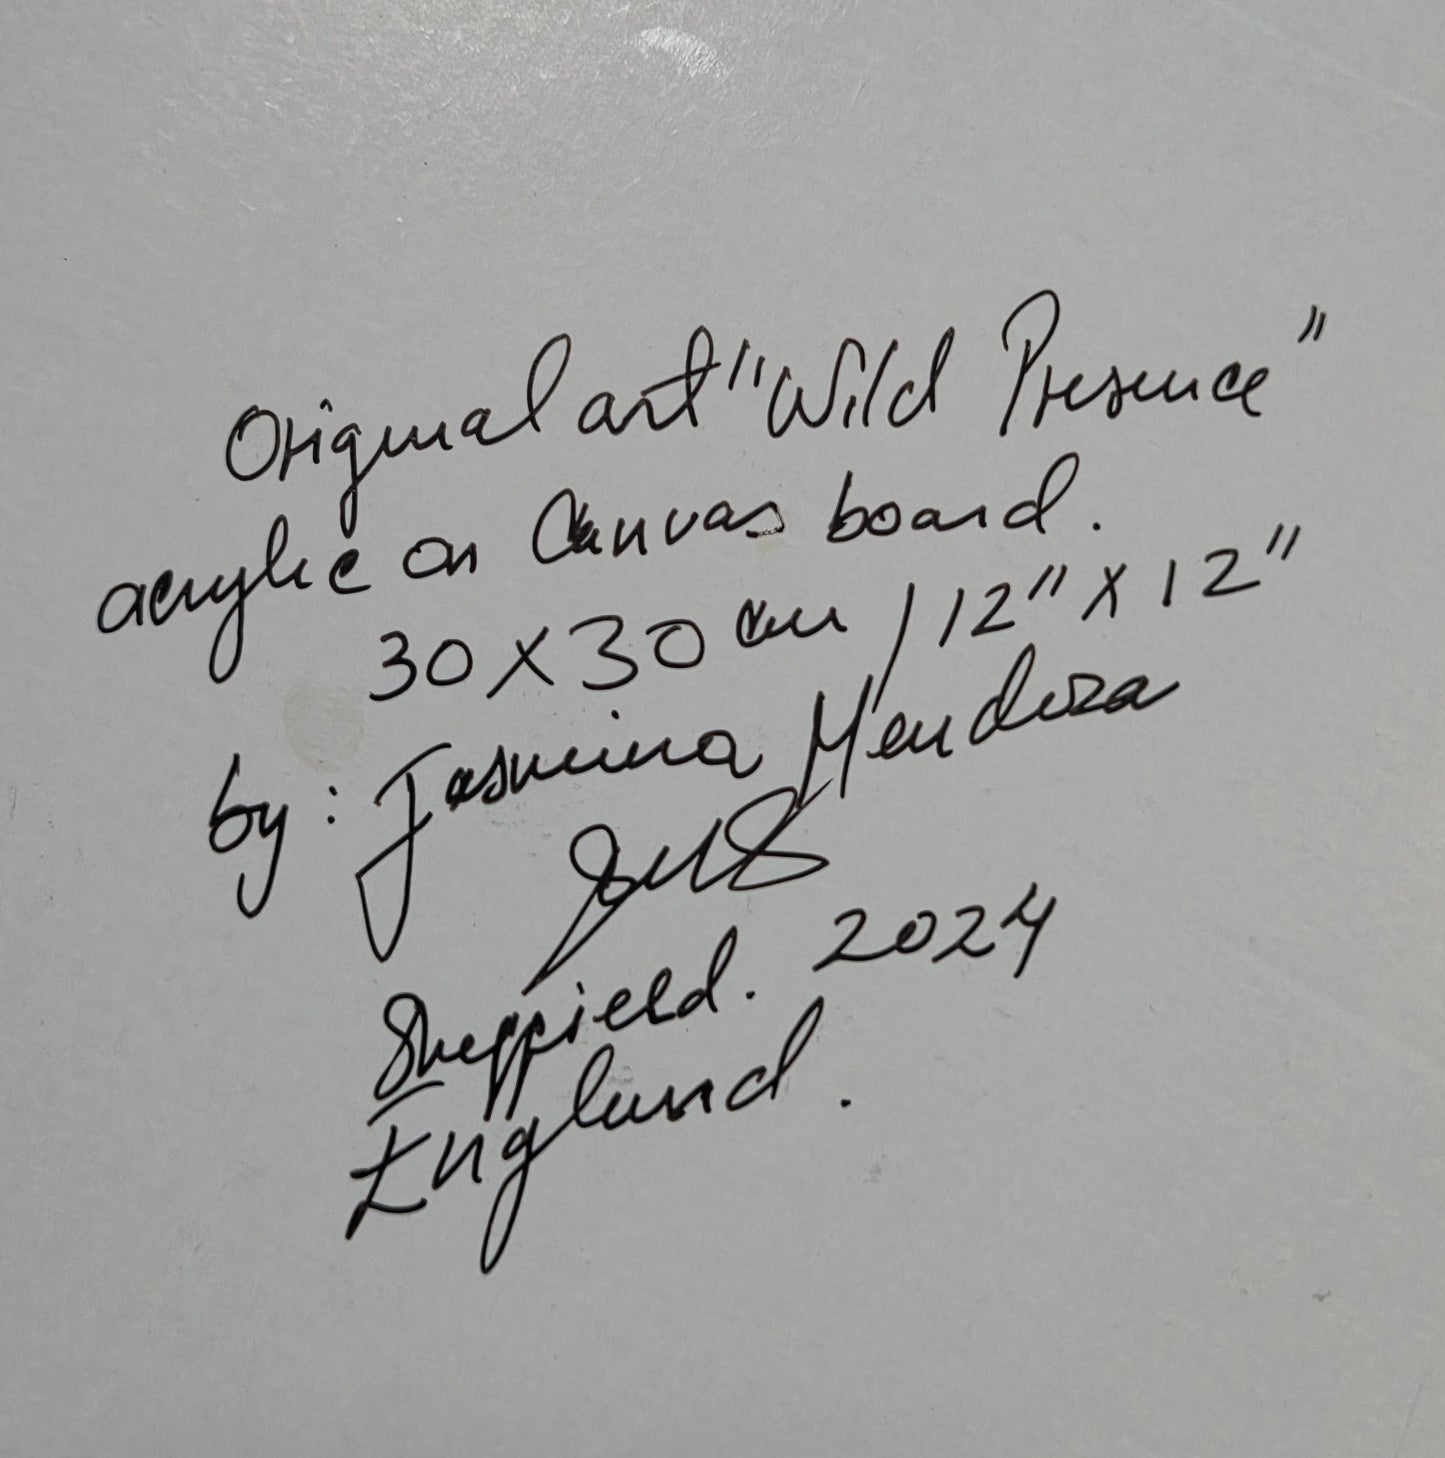 Original art "Wild Presence"
acrylic on Canvas board.
30 x 30 cm / 12" x 12"
by: Jasmina Mendoza
Sheffield. 2024
England.